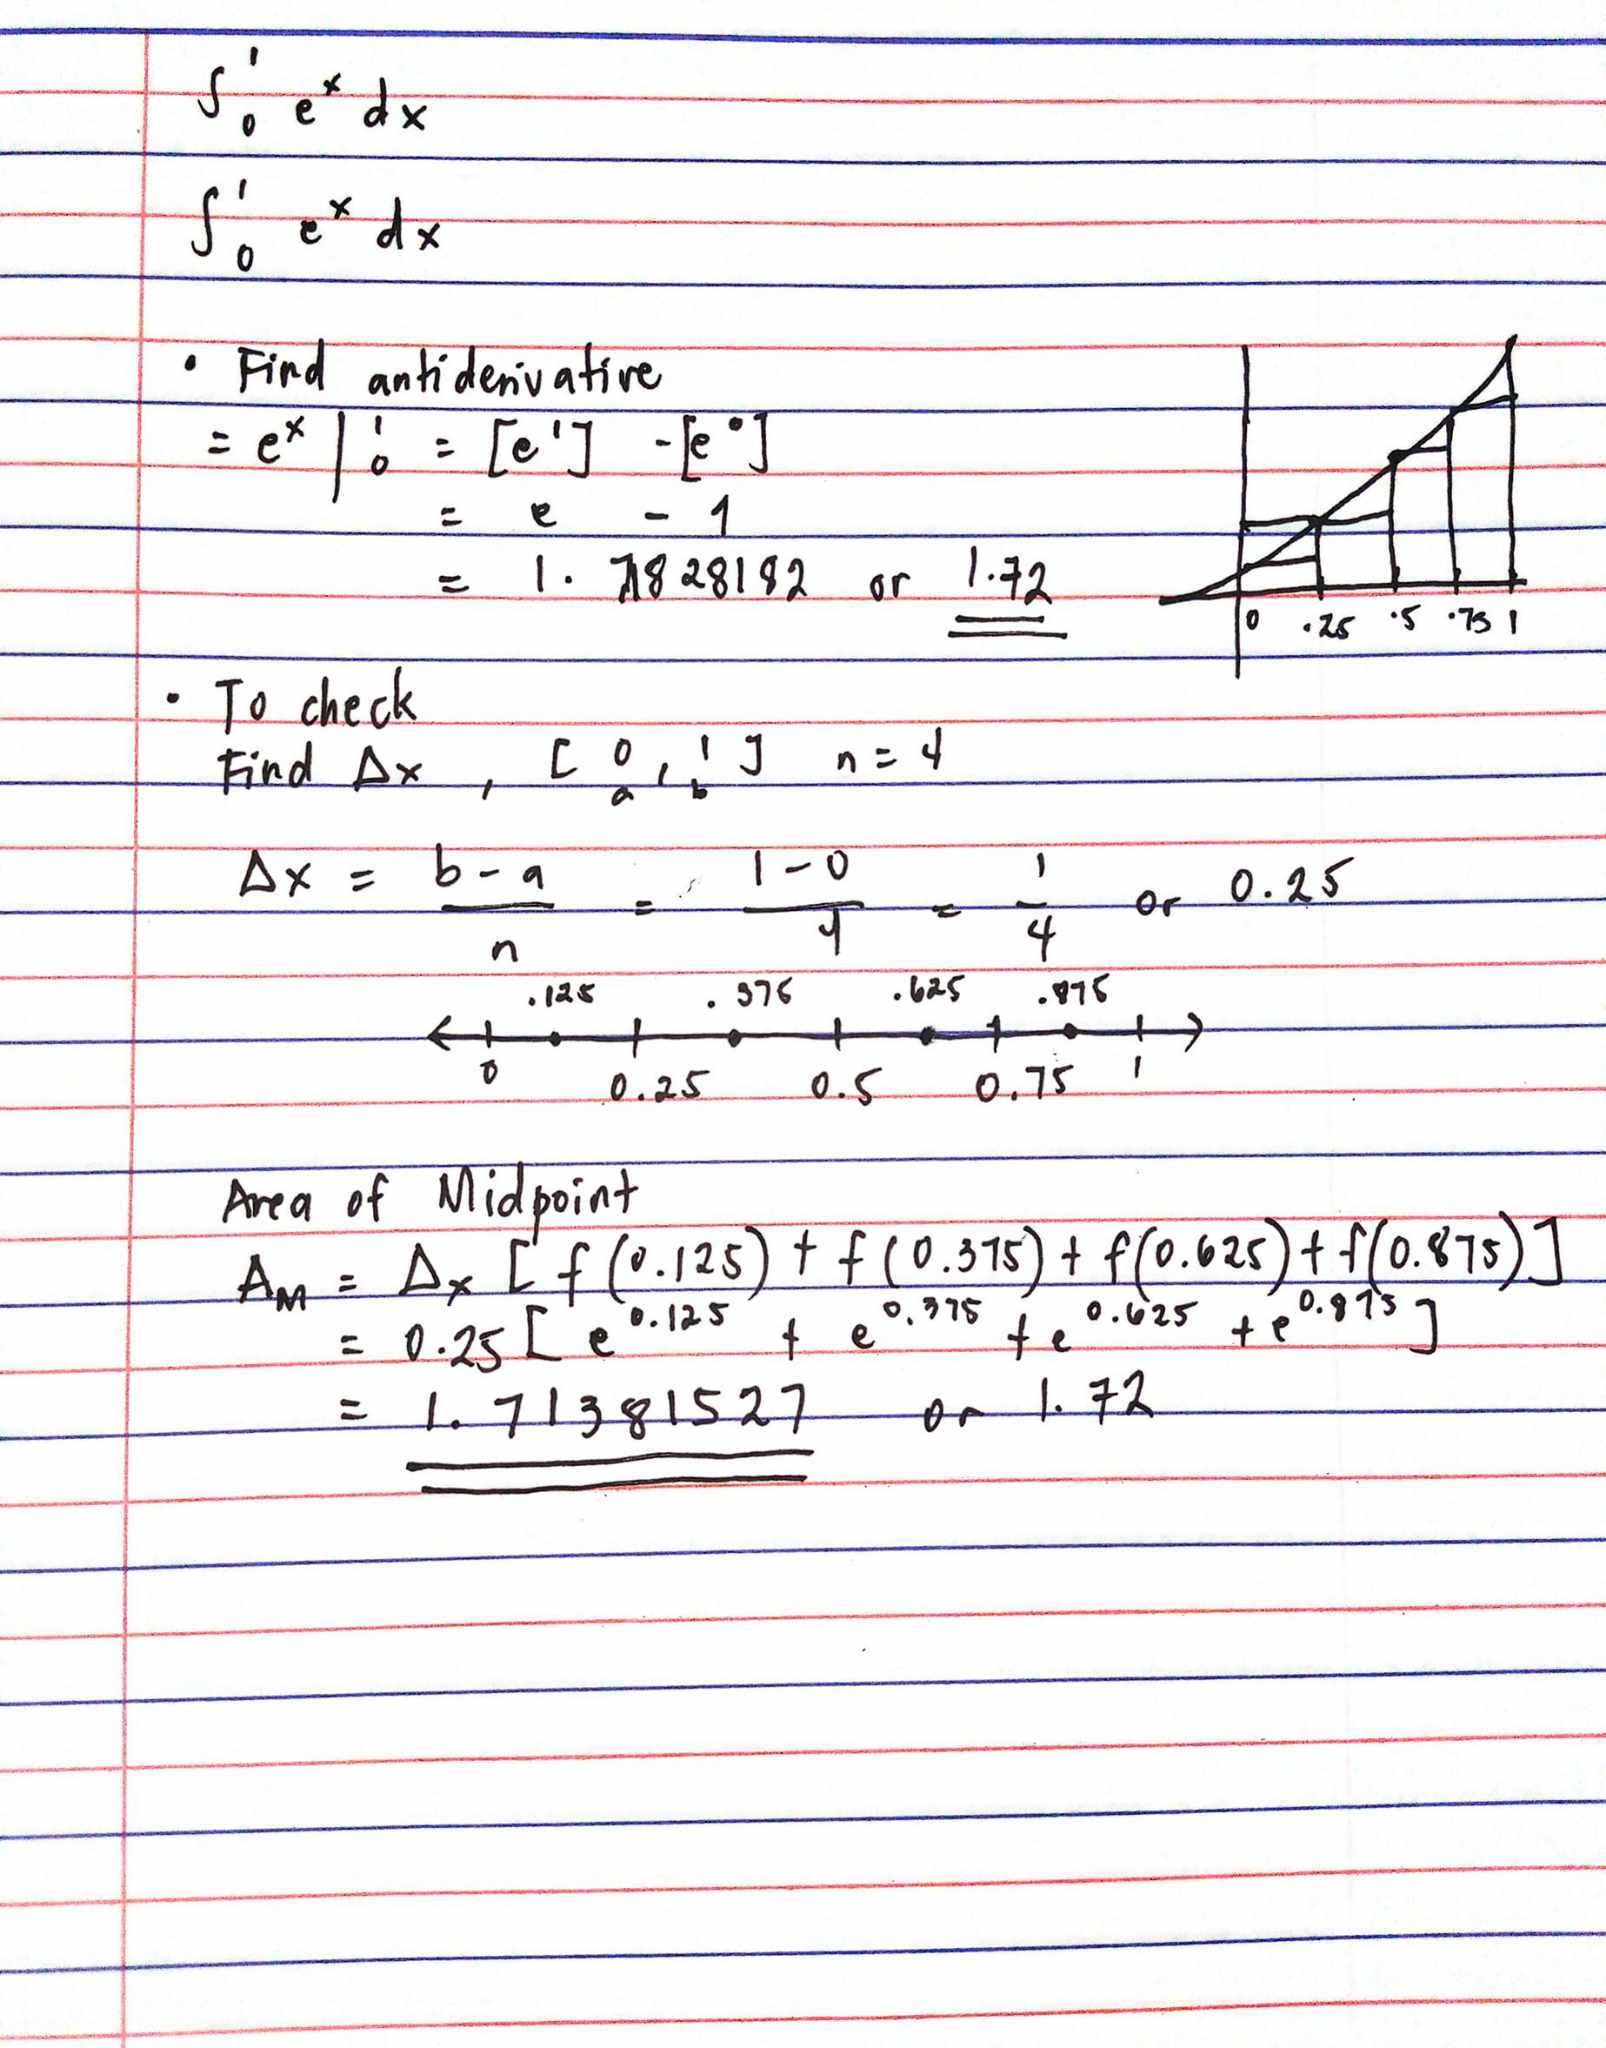 ∫₀¹ eˣ dx
∫₀¹ eˣ dx
• Find antiderivative
= eˣ |₀¹ = [e¹] - [e⁰]
= e - 1
= 1.71828182 or 1.72
0 .25 .5 .75 1
• To check
Find Δx , [0, 1] n = 4
a b
Δx = b-a / n = 1-0 / 4 = 1/4 or 0.25
.125 .375 .625 .875
0 0.25 0.5 0.75 1
Area of Midpoint
A_M = Δx [f(0.125) + f(0.375) + f(0.625) + f(0.875)]
= 0.25 [e^0.125 + e^0.375 + e^0.625 + e^0.875]
= 1.71381527 or 1.72